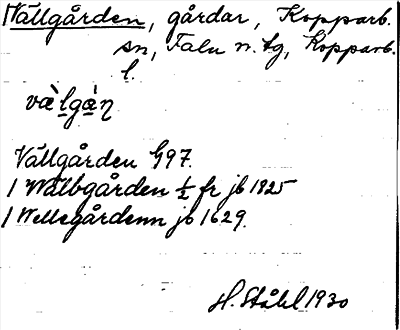 Vällgården, gårdar, Kopparb.
sn, Falu n. tg, Kopparb.
l.
væ̀lgæ̀ṇ
Vällgården G97.
/ Wälbgården ½ fr jb 1825
/ Wellegårdenn jb 1629.
H. Ståhl 1930